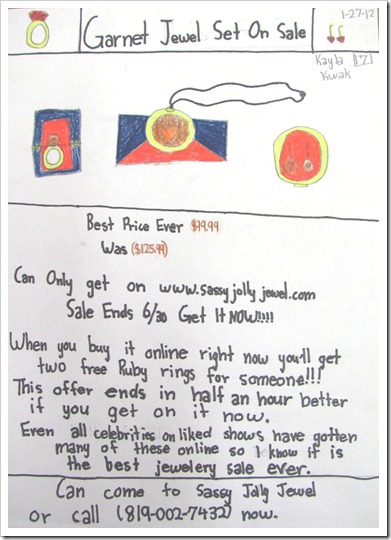 Garnet Jewel Set On Sale
1-27-12
Kayla
Kwak
Best Price Ever $99.99
Was ($125.99)
Can Only get on www.sassyjollyjewel.com
Sale Ends 6/30 Get It NOW!!!!
When you buy it online right now you'll get
two free Ruby rings for someone!!!
This offer ends in half an hour better
if you get on it now.
Even all celebrities on liked shows have gotten
many of these online so I know it is
the best jewelery sale ever.
Can come to Sassy Jolly Jewel
or call (819-002-7432) now.